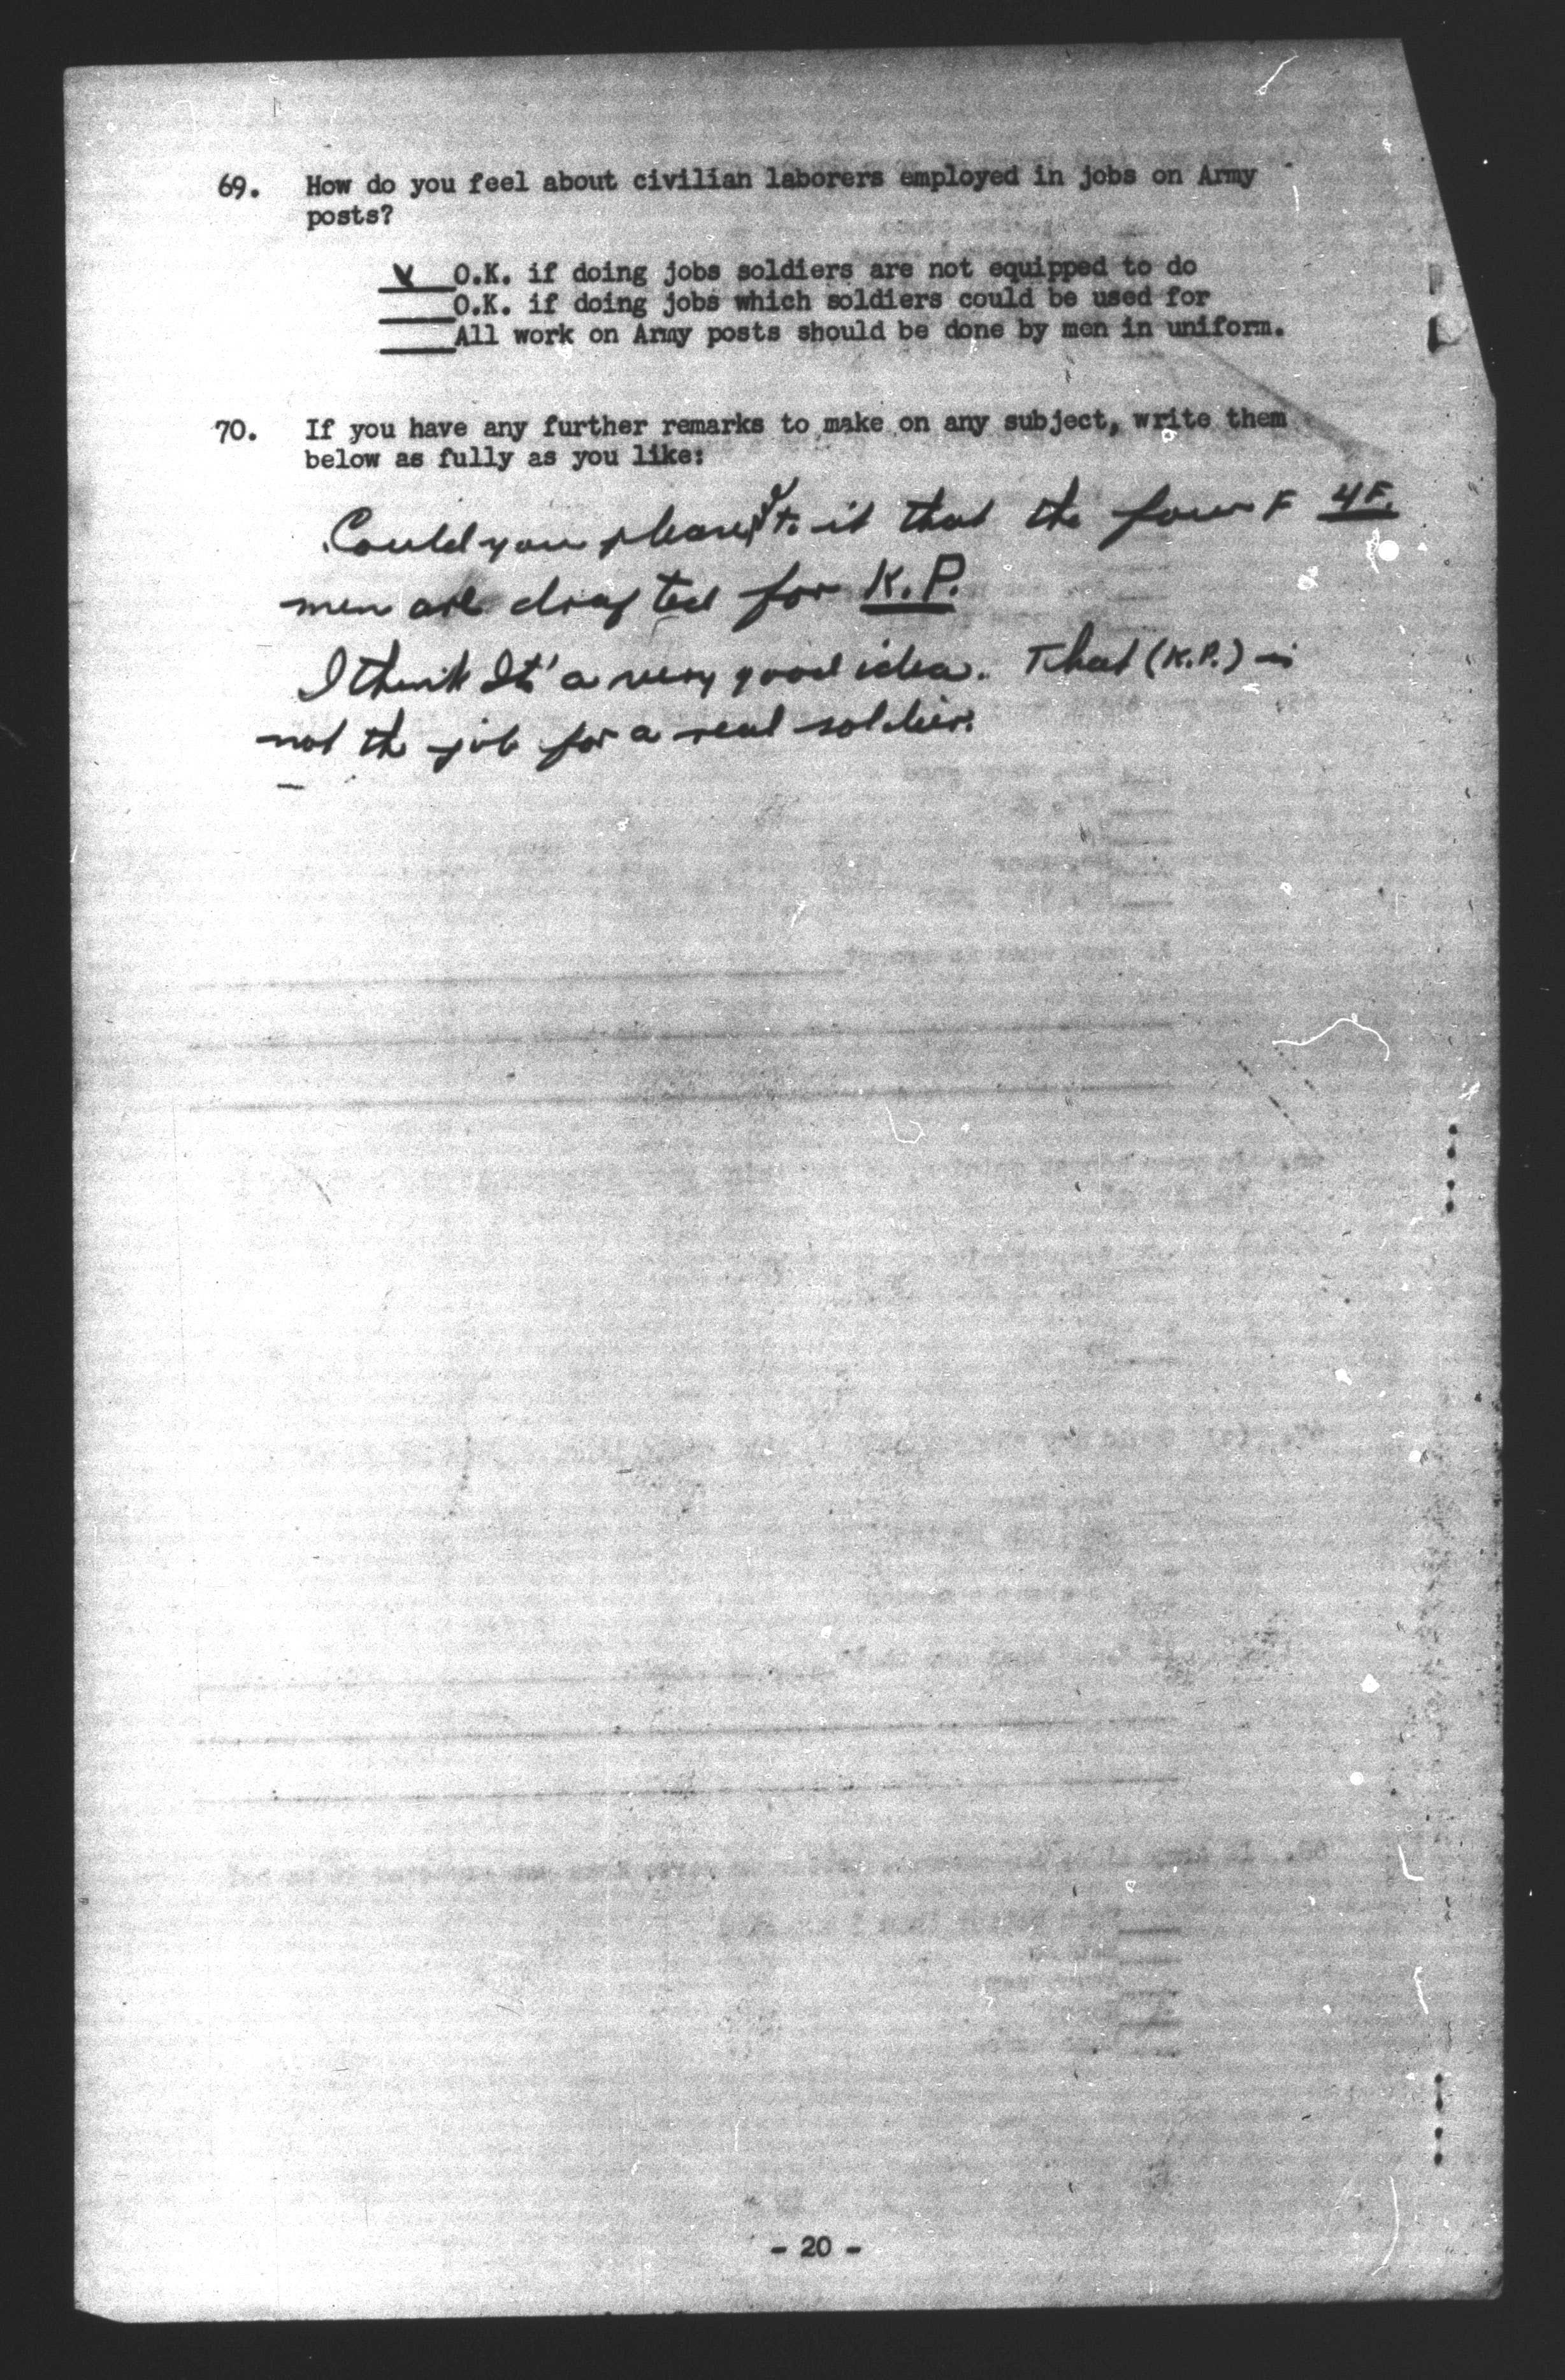 69. How do you feel about civilian laborers employed in jobs on Army
posts?
V O.K. if doing jobs soldiers are not equipped to do
O.K. if doing jobs which soldiers could be used for
All work on Army posts should be done by men in uniform.
70. If you have any further remarks to make on any subject, write them
below as fully as you like:
Could you please to it that the four F 4F.
men are drafted for K.P.
I think It' a very good idea. That (K.P.) is
not the job for a real soldier.
- 20 -